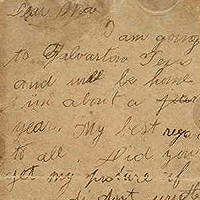 Dear Ma
I am going
to Galvarton Texs
and will be home
in about a
year. My best
to all. Did you
get my picture if